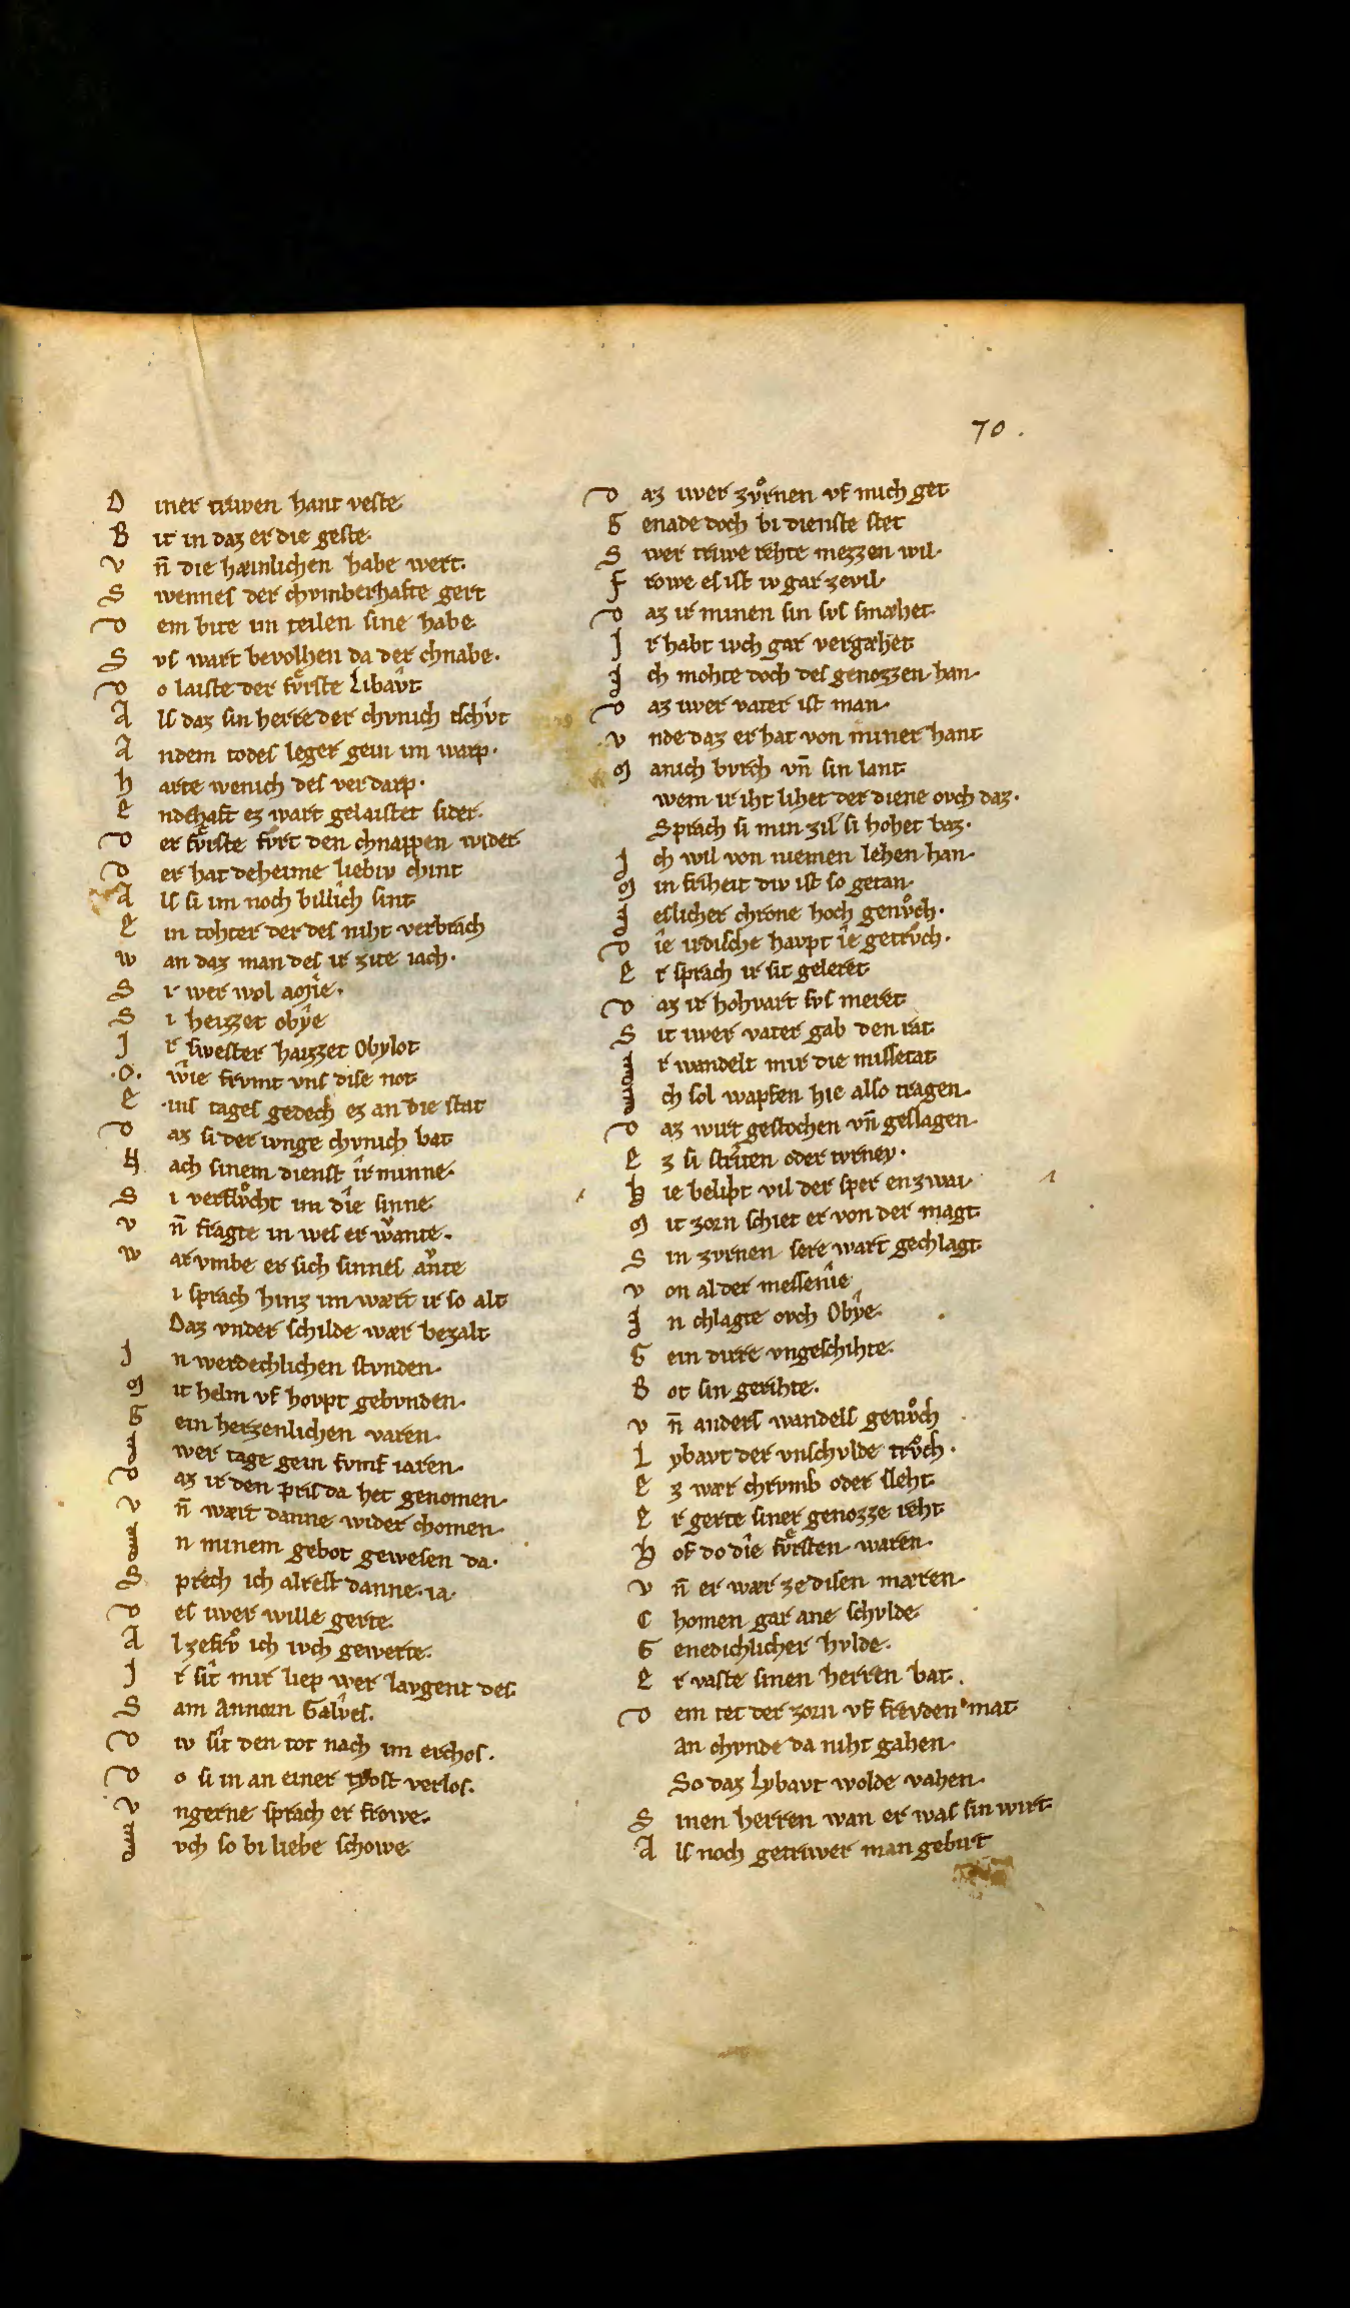 70.
D iner triwen hant veste
B it in daz er die geste·
v n̄ die hæinlichen habe wert·
S wennes der chvmberhafte gert
D em bite im teilen sine habe
S vs wart bevolhen da der chnabe·
D o laiste der fv̊rste Libavt
A ls daz sin herre der chvnich tschvt
A ndem todes leger gein im warp·
h arte wenich des verdarp·
E ndehaft ez wart gelaistet sider·
D er fv̊rste fv̊rt den chnappen wider
D er hat deheime liebiv chint
A ls si im noch billich sint
E in tohter der des niht verbrach
w an daz man des ir zite iach·
S i wer wol amîe·
S i heizzet obŷe
J r swester haizzet Obylot
·O· wîe frvmt vns dise not
E ·ins tages gedech ez an die stat
D az si der ivnge chvnich bat
N ach sinem dienst îr minne·
S i verflv̊cht im dîe sinne
v n̄ fragte in wes er wante·
w arvmbe er sich sinnes ante
i sprach hinz im wært ir so alt
Daz vnder schilde wær bezalt
J n werdechlichen stvnden·
M it helm vf hovpt gebvnden·
G ein herzenlichen varen·
J wer tage gein fvmf iaren·
D az ir den pris da het genomen·
v n̄ wært danne wider chomen·
J n minem gebot gewesen da·
S prech ich alrest danne·ia·
D es iwer wille gerte·
A l zefrv̊ ich ivch gewerte·
J r sît mir liep wer lavgent des
S am Annorn Galv̂es·
D iv sît den tot nach im erchos·
D o si in an einer tyost verlos·
v ngerne sprach er frowe·
J vch so bi liebe schowe
D az iwer zv̊rnen vf mich get
G enade doch bi dienste stet
S wer triwe rehte mezzen wil·
F rowe es ist iv gar zevil·
D az ir minen sin svs smæhet
J r habt ivch gar vergæhet
J ch mohte doch des genozzen han·
D az iwer vater ist man·
v nde daz er hat von miner hant
M anich bvrch vn̄ sin lant
wem ir iht lihet der diene ovch daz·
Sprach si min zil si hoher baz·
J ch wil von niemen lehen han·
M in friheit div ist so getan·
J eslicher chrone hoch genv̊ch·
D îe irdische havpt îe getrv̊ch·
E r sprach ir sit geleret
D az ir hohvart svs meret
S it iwer vater gab den rat
J r wandelt mir die missetat
J ch sol wapfen hie also tragen·
D az wirt gestochen vn̄ geslagen·
E z si striten oder tvrney·
h ie belipt vil der sper enzwai·
M it zorn schiet er von der magt
S in zvrnen sere wart gechlagt
v on al der messenîe
J n chlagte ovch Obŷe·
G ein dirre vngeschihte·
B ot sin gerihte·
v n̄ anders wandels genv̊ch
L ybavt der vnschvlde trv̊ch·
E z wær chrvmb oder sleht
E r gerte siner genozze reht
h of do dîe fv̊rsten waren·
v n̄ er wær ze disen mæren·
C homen gar ane schvlde·
G enedichlicher hvlde·
E r vaste sinen herren bat·
D em tet der zorn vf frevden mat
an chvnde da niht gahen·
So daz Lybavt wolde vahen·
S inen herren wan er was sin wirt
A ls noch getriwer man gebirt